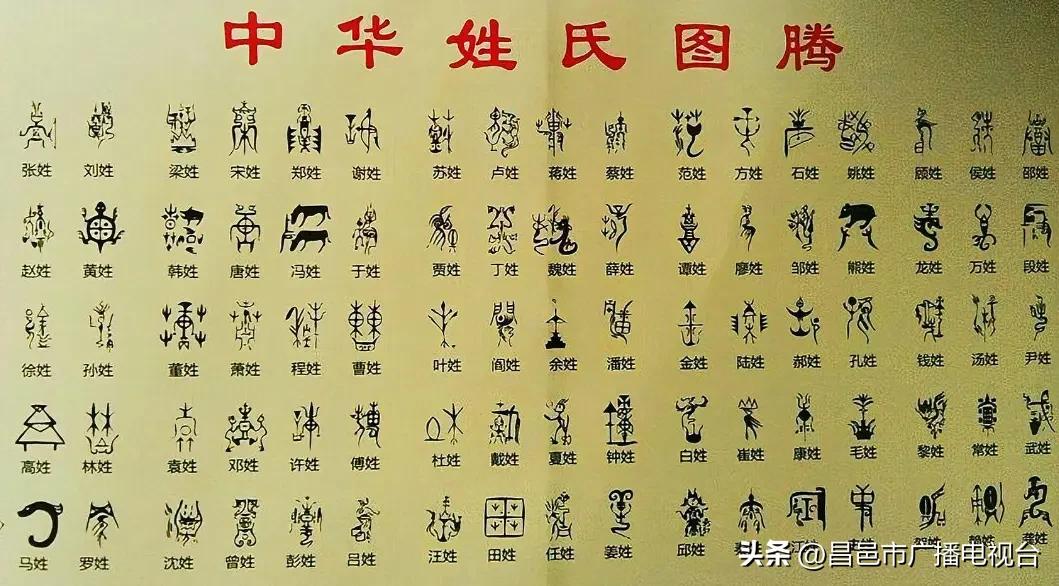 中华姓氏图腾
张姓 刘姓 梁姓 宋姓 郑姓 谢姓 苏姓 卢姓 蒋姓 蔡姓 范姓 方姓 石姓 姚姓 顾姓 侯姓 邵姓
赵姓 黄姓 韩姓 唐姓 冯姓 于姓 贾姓 丁姓 魏姓 薛姓 谭姓 廖姓 邹姓 熊姓 龙姓 万姓 段姓
徐姓 孙姓 董姓 萧姓 程姓 曹姓 叶姓 阎姓 余姓 潘姓 金姓 陆姓 郝姓 孔姓 钱姓 汤姓 尹姓
高姓 林姓 袁姓 邓姓 许姓 傅姓 杜姓 戴姓 夏姓 钟姓 白姓 崔姓 康姓 毛姓 黎姓 常姓 武姓
马姓 罗姓 沈姓 曾姓 彭姓 吕姓 汪姓 田姓 任姓 姜姓 邱姓
头条 @昌邑市广播电视台